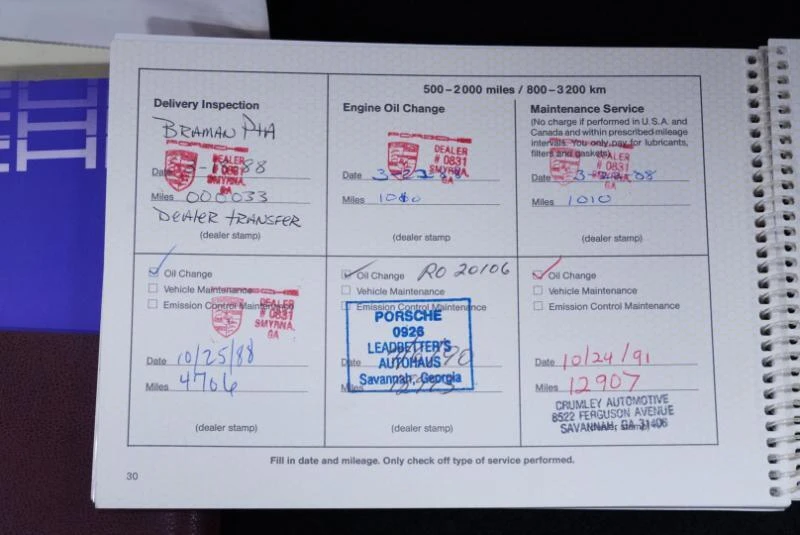 500–2000 miles / 800–3200 km
Delivery Inspection
BRAMAN PHA
DEALER
# 0831
SMYRNA,
GA
Date 88
Miles 000033
DEALER TRANSFER
(dealer stamp)
Engine Oil Change
DEALER
# 0831
SMYRNA,
GA
Date
Miles
(dealer stamp
Maintenance Service
(No charge if performed in U.S.A. and
Canada and within prescribed mileage
intervals. You only pay for lubricants,
filters and gaskets)
DEALER
# 0831
SMYRNA,
GA
Date 88
Miles 1010
(dealer stamp)
Oil Change
Vehicle Maintenance
Emission Control Maintenance
DEALER
# 0831
SMYRNA,
GA
Date 10/25/88
Miles 4706
(dealer stamp)
Oil Change RO 20106
Vehicle Maintenance
Emission Control Maintenance
PORSCHE
0926
LEADBETTER'S
AUTOHAUS
Savannah, Georgia
Date
Miles
(dealer stamp)
Oil Change
Vehicle Maintenance
Emission Control Maintenance
Date 10/24/91
Miles 12907
CRUMLEY AUTOMOTIVE
8522 FERGUSON AVENUE
SAVANNAH, GA 31406
(dealer stamp)
Fill in date and mileage. Only check off type of service performed.
30